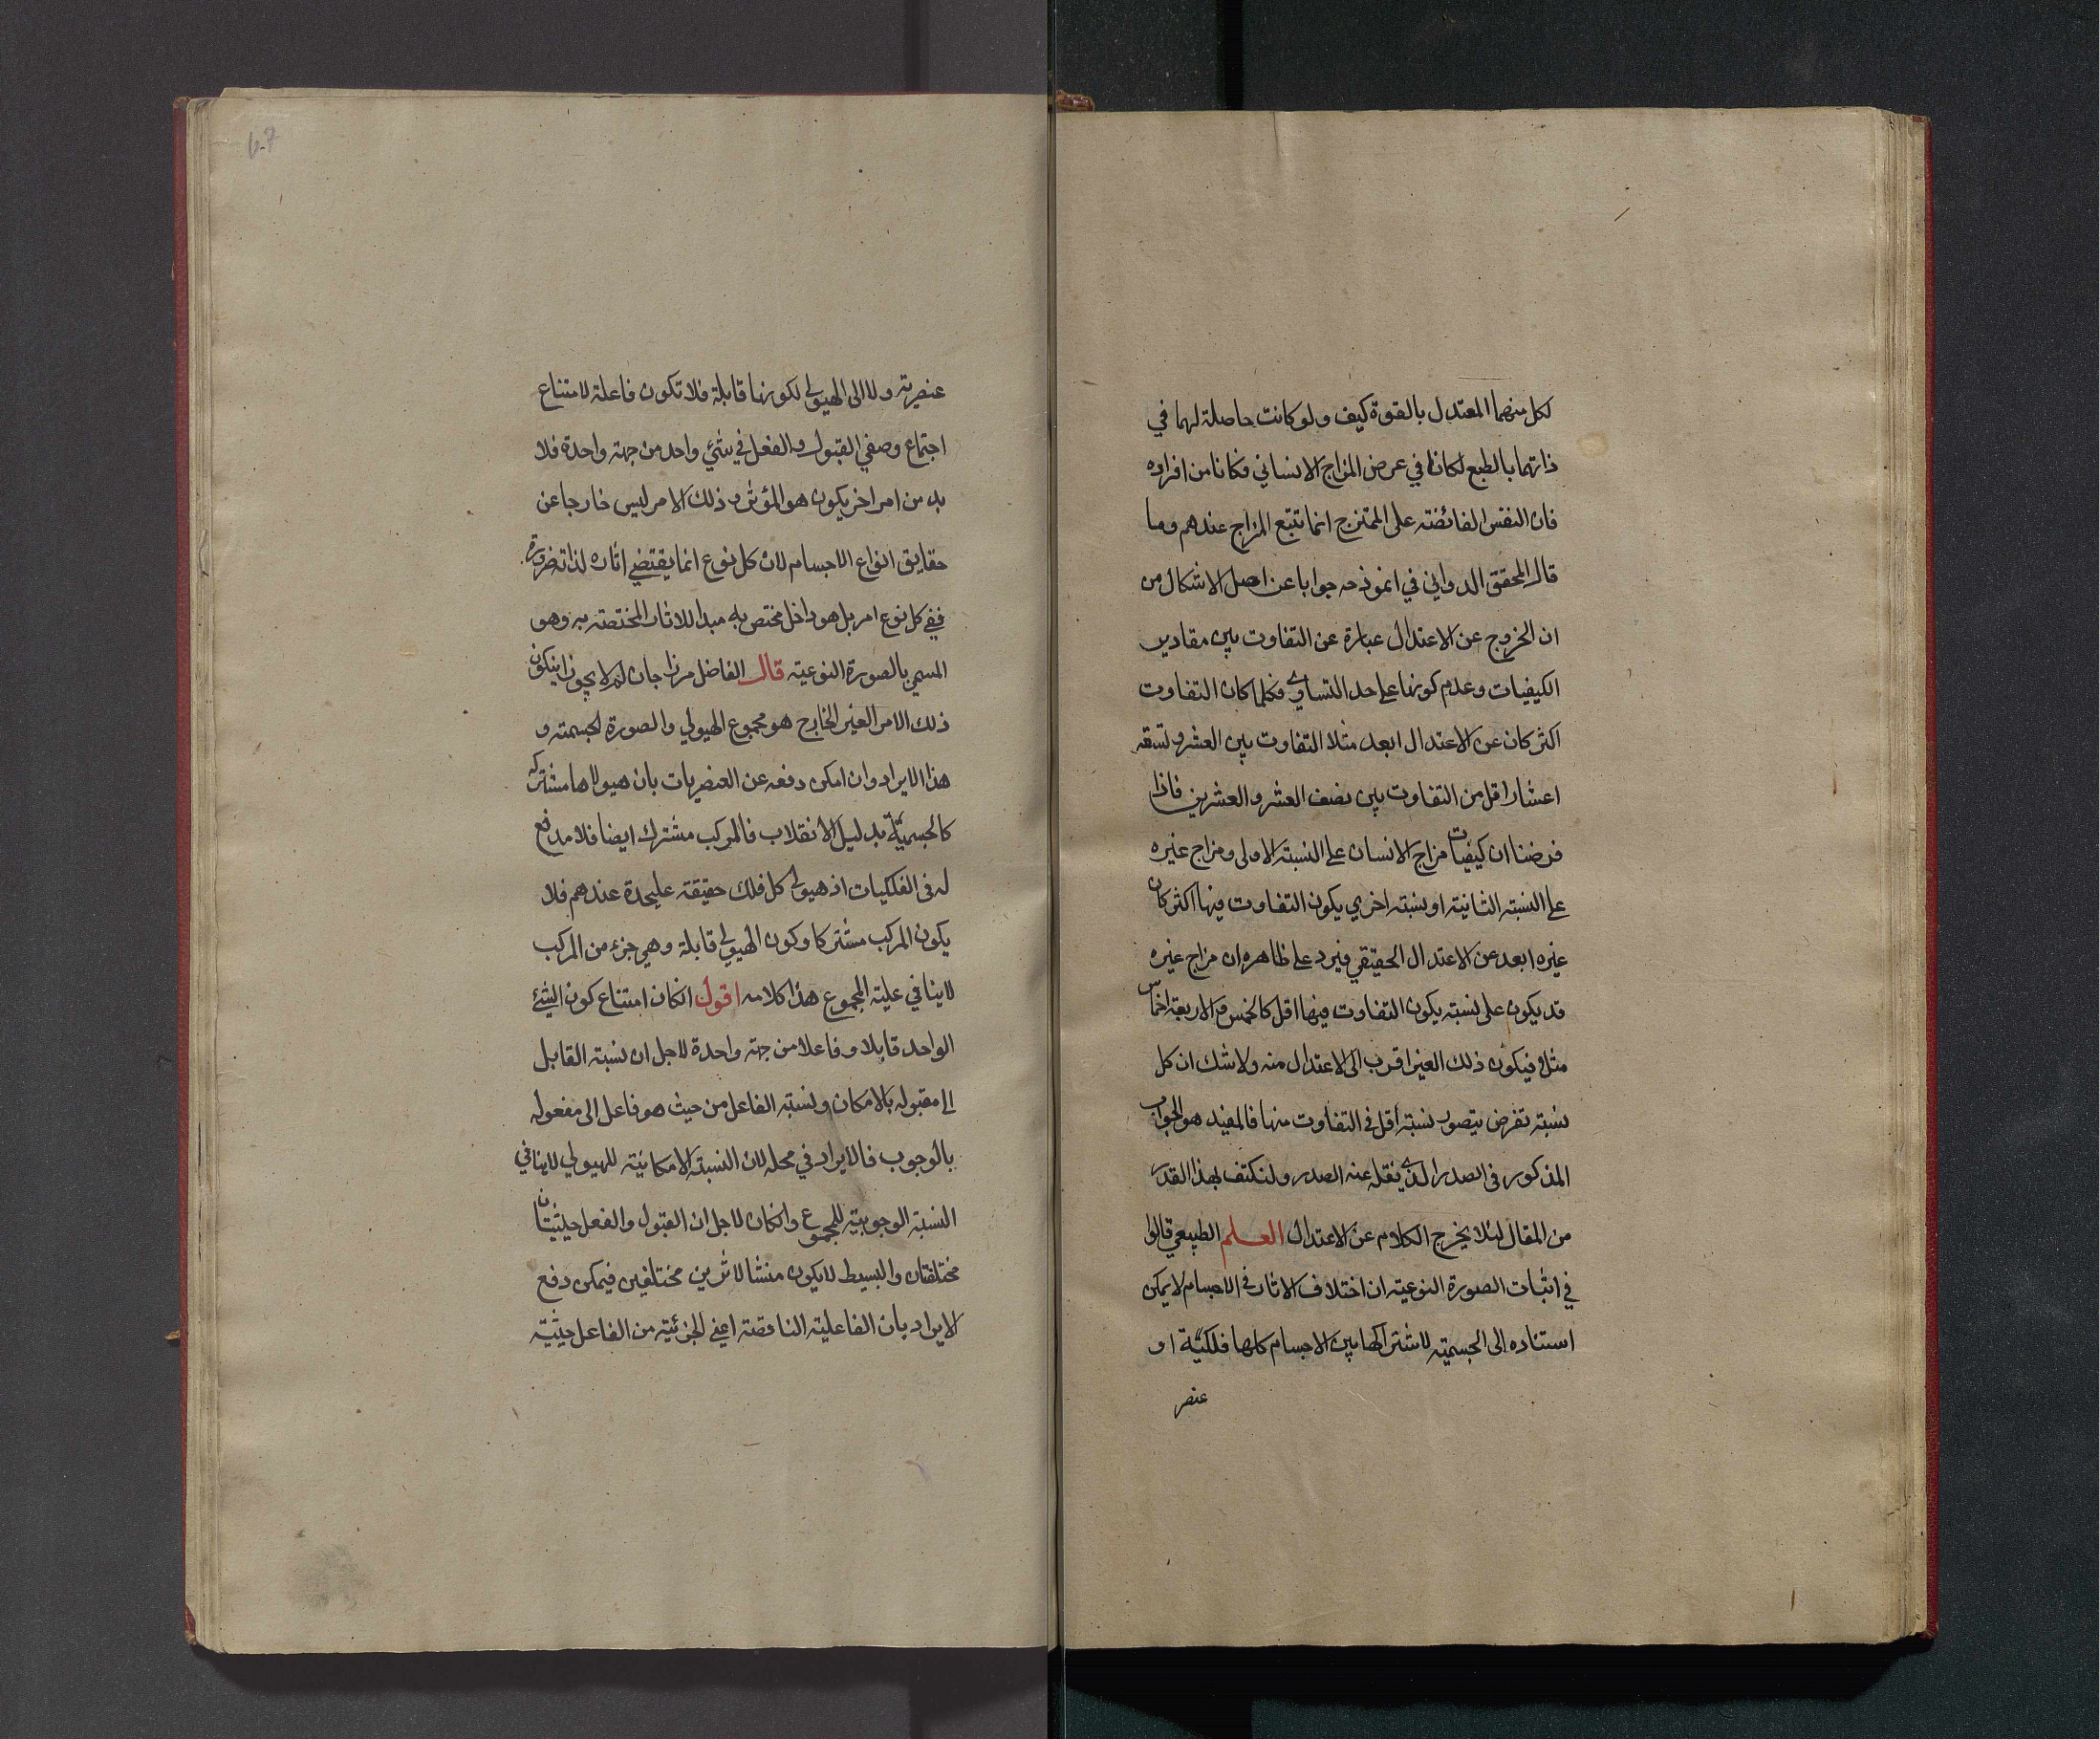 لكل منهما المعتدل بالقوة كيف ولو كانت حاصلة لهما في
ذاتهما بالطبع لكانا في عرض المزاج الانساني فكانا من افراده
فان النفس الفائضة على الممتزج انما تتبع المزاج عندهم وما
قال المحقق الدواني في انموذجه جوابا عن اصل الاشكال من
ان الخروج عن الاعتدال عبارة عن التفاوت بين مقادير
الكيفيات وعدم كونها على حد التساوي فكلما كان التفاوت
اكثر كان عن الاعتدال ابعد مثلا التفاوت بين العشر وتسعة
اعشار اقل من التفاوت بين نصف العشر والعشرين فاذا
فرضنا ان كيفيات مزاج الانسان على النسبة الاولى ومزاج غيره
على النسبة الثانية او نسبة اخرى يكون التفاوت فيها اكثر كان
غيره ابعد عن الاعتدال الحقيقي فيرد على ظاهره ان مزاج غيره
قد يكون على نسبة يكون التفاوت فيها اقل كالخمس والاربعة اخماس
مثلا فيكون ذلك الغير اقرب الى الاعتدال منه ولا شك ان كل
نسبة تفرض يتصور نسبة اقل في التفاوت منها فالمفيد هو الجواب
المذكور في الصدر الذي نقله عنه الصدر ولنكتف بهذا القدر
من المقال لئلا يخرج الكلام عن الاعتدال العلم الطبيعي قالوا
في اثبات الصورة النوعية ان اختلاف الاثار في الاجسام لا يمكن
استناده الى الجسمية لاشتراكها بين الاجسام كلها فلكية او
عنصر
عنصرية ولا الى الهيولى لكونها قابلة فلا تكون فاعلة لامتناع
اجتماع وصفي القبول والفعل في شئ واحد من جهة واحدة فلا
بد من امر اخر يكون هو المؤثر وذلك الامر ليس خارجا عن
حقايق انواع الاجسام لان كل نوع انما يقتضي اثاره لذاته ضرورة
ففي كل نوع امر بل هو داخل مختص به مبدا للاثار المختصة به وهو
المسمى بالصورة النوعية قال الفاضل مرزا جان لم لا يجوز ان يكون
ذلك الامر الغير الخارج هو مجموع الهيولي والصورة الجسمية و
هذا الايراد وان امكن دفعه عن العنصريات بان هيولاها مشتركة
كالجسمية بدليل الانقلاب فالمركب مشترك ايضا فلا مدفع
له في الفلكيات اذ هيولى كل فلك حقيقة عليحدة عندهم فلا
يكون المركب مشتركا وكون الهيولى قابلة وهي جزء من المركب
لا ينافي علية المجموع هذا كلامه اقول انكان امتناع كون الشئ
الواحد قابلا وفاعلا من جهة واحدة لاجل ان نسبة القابل
الى مقبوله بالامكان ونسبة الفاعل من حيث هو فاعل الى مفعوله
بالوجوب فالايراد في محله لان النسبة الامكانية للهيولي لا ينافي
النسبة الوجوبية للمجموع وانكان لاجل ان القبول والفعل حيثيتان
مختلفتان والبسيط لا يكون منشا لاثرين مختلفين فيمكن دفع
الايراد بان الفاعلية الناقصة اعني الجزئية من الفاعل حيثية